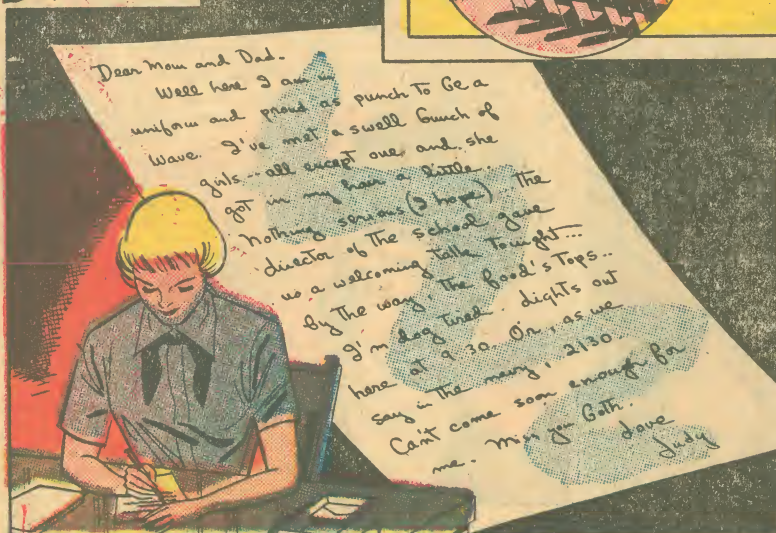 Dear Mom and Dad.
Well here I am in
uniform and proud as punch to be a
Wave. I've met a swell bunch of
girls -- all except one and she
got in my hair a little.
Nothing serious (I hope)... The
director of the school gave
us a welcoming talk tonight...
by the way, the food's tops..
I'm dog tired. Lights out
here at 9 30. Or, as we
say in the navy, 2130.
Can't come soon enough for
me. Miss you both.
Love
Judy